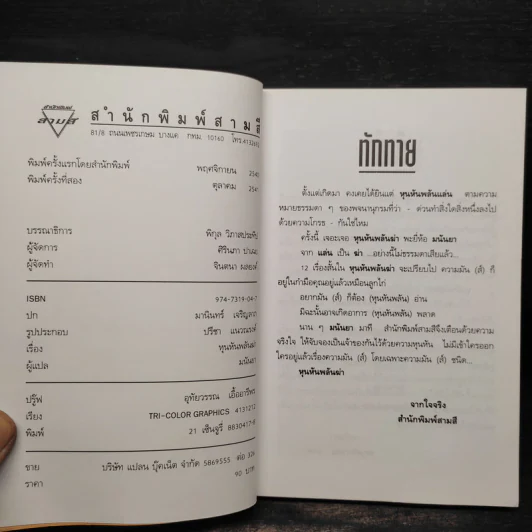 สำนักพิมพ์
สามสี
สำนักพิมพ์สามสี
81/8 ถนนเพชรเกษม บางแค กทม. 10160 โทร.
พิมพ์ครั้งแรกโดยสำนักพิมพ์ พฤศจิกายน
พิมพ์ครั้งที่สอง ตุลาคม
บรรณาธิการ พิกุล
ผู้จัดการ ศิรินภา
ผู้จัดทำ จินตนา
ISBN 974-7319-04-7
ปก มานินทร์ เจริญลาภ
รูปประกอบ ปรีชา แนวณรงค์
เรื่อง หุนหันพลันฆ่า
ผู้แปล มนันยา
ปรู๊ฟ อุทัยวรรณ เอื้ออารีพร
เรียง TRI-COLOR GRAPHICS 4131213
พิมพ์ 21 เซ็นจูรี่ 8830417-8
ขาย บริษัท แปลน บุ๊คเน็ต จำกัด 5869555 ต่อ
ราคา 90 บาท
ทักทาย
ตั้งแต่เกิดมา คงเคยได้ยินแต่ หุนหันพลันแล่น ตามความ
หมายธรรมดา ๆ ของพจนานุกรมที่ว่า - ด่วนทำสิ่งใดสิ่งหนึ่งลงไป
ด้วยความโกรธ - กันใช่ไหม
ครั้งนี้ เจอะเจอ หุนหันพลันฆ่า พะยี่ห้อ มนันยา
จาก แล่น เป็น ฆ่า ...อย่างนี้ไม่ธรรมดาเสียแล้ว...
12 เรื่องสั้นใน หุนหันพลันฆ่า จะเปรียบไป ความมัน (ส์) ก็
อยู่ในกำมือคุณอยู่แล้วเหมือนลูกไก่
อยากมัน (ส์) ก็ต้อง (หุนหันพลัน) อ่าน
มิฉะนั้นอาจเกิดอาการ (หุนหันพลัน) พลาด
นาน ๆ มนันยา มาที สำนักพิมพ์สามสีจึงเตือนด้วยความ
จริงใจ ให้จับจองเป็นเจ้าของกันไว้ด้วยความหุนหัน ไม่มีเข้าใครออก
ใครอยู่แล้วเรื่องความมัน (ส์) โดยเฉพาะความมัน (ส์) ชนิด...
หุนหันพลันฆ่า
จากใจจริง
สำนักพิมพ์สามสี